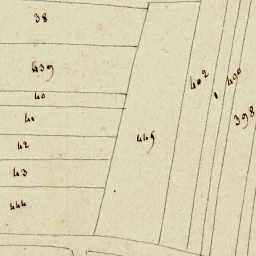 38
439
40
41
42
43
444
445
402
400
398